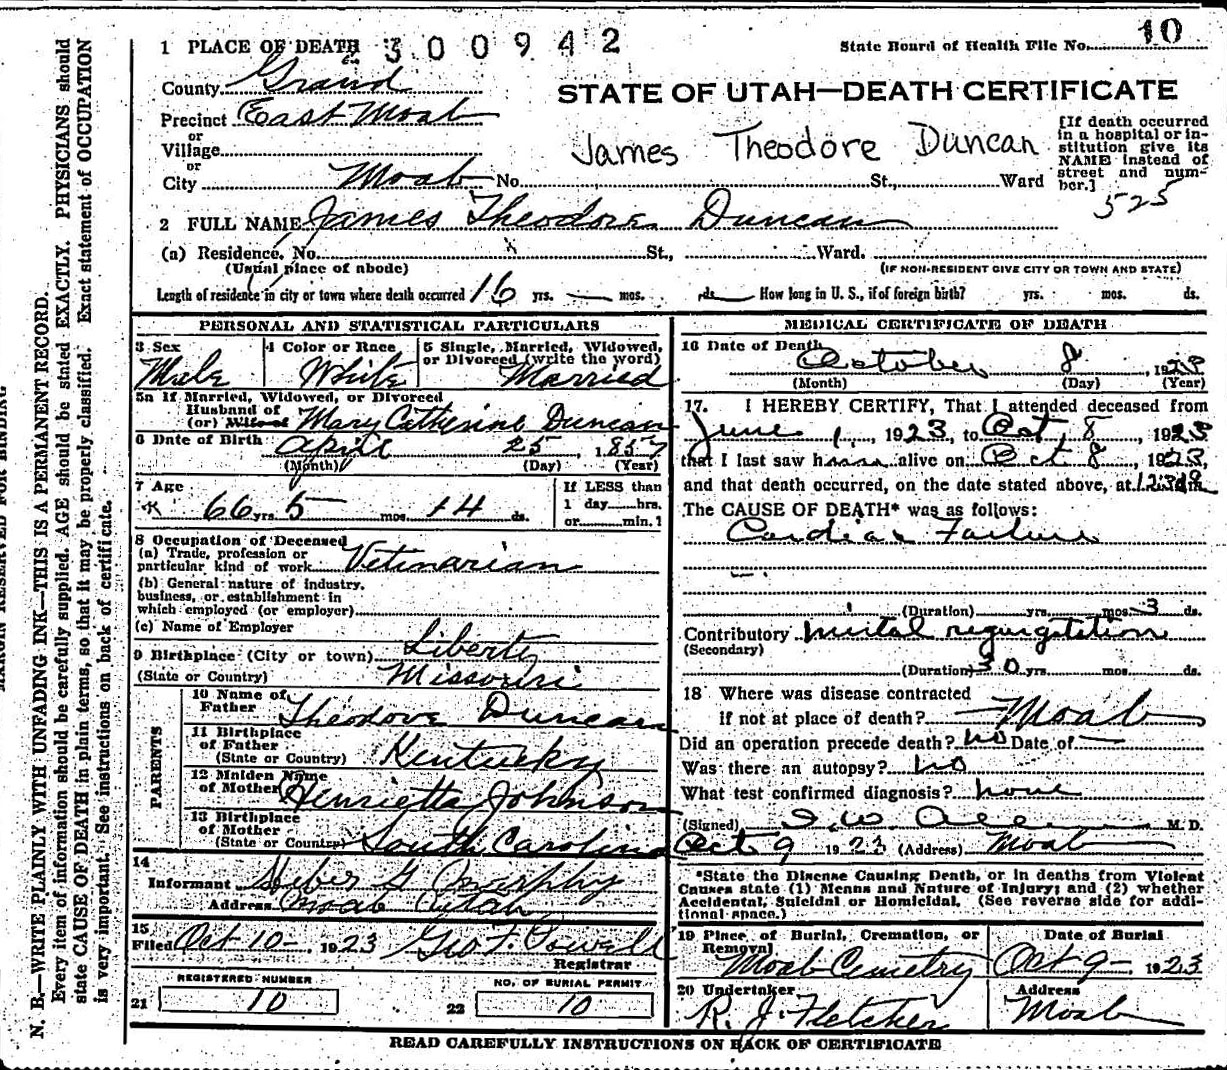 1 PLACE OF DEATH 300942
State Board of Health File No. 10
County Grand
STATE OF UTAH—DEATH CERTIFICATE
Precinct East Moab
or
Village
or
City Moab No. St., Ward
James Theodore Duncan
[If death occurred
in a hospital or in-
stitution give its
NAME instead of
street and num-
ber.]
525
2 FULL NAME James Theodore Duncan
(a) Residence, No. x St., Ward.
(Usual place of abode)
(IF NON-RESIDENT GIVE CITY OR TOWN AND STATE)
Length of residence in city or town where death occurred 16 yrs. — mos. ds. — How long in U. S., if of foreign birth? yrs. mos. ds.
PERSONAL AND STATISTICAL PARTICULARS
3 Sex
Male
4 Color or Race
White
5 Single, Married, Widowed,
or Divorced (write the word)
Married
5a If Married, Widowed, or Divorced
Husband of
(or) Wife of Mary Catherine Duncan
6 Date of Birth April 25, 1857
(Month) (Day) (Year)
7 Age
66 yrs 5 mos 14 ds.
If LESS than
1 day hrs.
or min.?
8 Occupation of Deceased
(a) Trade, profession or
particular kind of work Vetinarian
(b) General nature of industry,
business, or establishment in
which employed (or employer)
(c) Name of Employer
9 Birthplace (City or town) Liberty
(State or Country) Missouri
PARENTS
10 Name of
Father Theodore Duncan
11 Birthplace
of Father
(State or Country) Kentucky
12 Maiden Name
of Mother Henrietta Johnson
13 Birthplace
of Mother
(State or Country) South Carolina
14
Informant Heber G Murphy
Address Moab Utah
15
Filed Oct 10 - 1923 Geo F. Powell
Registrar
REGISTERED NUMBER
21 10
NO. OF BURIAL PERMIT
22 10
MEDICAL CERTIFICATE OF DEATH
16 Date of Death
October 8, 1923
(Month) (Day) (Year)
17. I HEREBY CERTIFY, That I attended deceased from
June 1, 1923, to Oct, 8, 1923
that I last saw h alive on Oct 8, 1923,
and that death occurred, on the date stated above, at m.
The CAUSE OF DEATH* was as follows:
Cardiac Failure
(Duration) yrs. mos. 3 ds.
Contributory mitral regurgitation
(Secondary)
(Duration) 30 yrs. mos. ds.
18 Where was disease contracted
if not at place of death? Moab
Did an operation precede death? no Date of —
Was there an autopsy? no
What test confirmed diagnosis? none
(Signed) I. W. Allen M. D.
Oct 9 1923 (Address) Moab
*State the Disease Causing Death, or in deaths from Violent
Causes state (1) Means and Nature of Injury; and (2) whether
Accidental, Suicidal or Homicidal. (See reverse side for addi-
tional space.)
19 Place of Burial, Cremation, or
Removal
Moab Cemetry
Date of Burial
Oct 9 - 1923
20 Undertaker
R. J. Fletcher
Address
Moab
READ CAREFULLY INSTRUCTIONS ON BACK OF CERTIFICATE
MARGIN RESERVED FOR BINDING
N. B.—WRITE PLAINLY WITH UNFADING INK—THIS IS A PERMANENT RECORD.
Every item of information should be carefully supplied. AGE should be stated EXACTLY. PHYSICIANS should
state CAUSE OF DEATH in plain terms, so that it may be properly classified. Exact statement of OCCUPATION
is very important. See instructions on back of certificate.